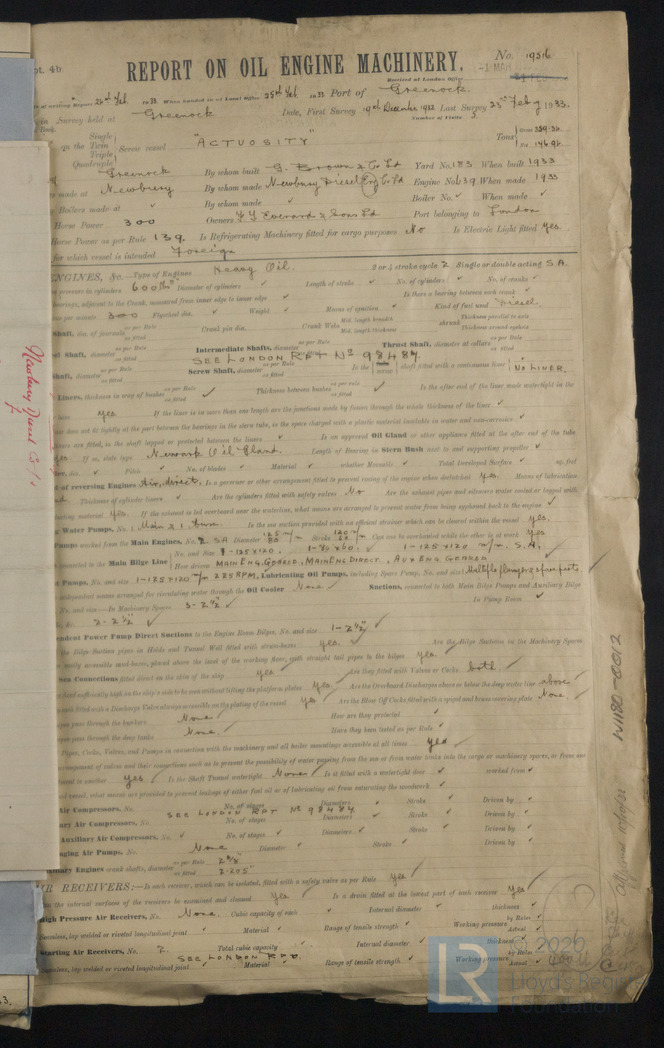 pt. 4b
REPORT ON OIL ENGINE MACHINERY.
No. 19516
-1 MAR
Received at London Office
of writing Report 24th Feb. 1933 When handed in at Local Office 25th Feb 1933 Port of Greenock.
in Survey held at Greenock Date, First Survey 19th December 1932 Last Survey 23rd Feby 1933.
Book. Number of Visits
Single
on the Twin Screw vessel "ACTUOSITY" Tons
Triple
Quadruple
Greenock By whom built G. Brown & Co Ld Yard No. 183 When built 1933
made at Newbury By whom made Newbury Diesel Eng Co Ld Engine No. 139 When made 1933
Boilers made at ✓ By whom made ✓ Boiler No. ✓ When made ✓
Horse Power 300 Owners F T Everard & Sons Ld Port belonging to London
Horse Power as per Rule 139. Is Refrigerating Machinery fitted for cargo purposes No Is Electric Light fitted Yes.
for which vessel is intended Foreign
ENGINES, &c. Type of Engines Heavy Oil 2 or 4 stroke cycle 2 Single or double acting S.A.
pressure in cylinders 600 lbs Diameter of cylinders ✓ Length of stroke ✓ No. of cylinders ✓ No. of cranks ✓
bearings, adjacent to the Crank, measured from inner edge to inner edge ✓ Is there a bearing between each crank ✓
per minute 300 Flywheel dia. ✓ Weight ✓ Means of ignition ✓ Kind of fuel used Diesel
Shaft, dia. of journals as per Rule as fitted Crank pin dia. Crank Webs Mid. length breadth Mid. length thickness shrunk Thickness parallel to axis Thickness around eyehole
Shaft, diameter as per Rule as fitted Intermediate Shafts, diameter as per Rule as fitted Thrust Shaft, diameter at collars as per Rule as fitted
SEE LONDON RPT No 98484.
Shaft, diameter as per Rule as fitted Screw Shaft, diameter as per Rule as fitted Is the shaft fitted with a continuous liner NO LINER.
Liners, thickness in way of bushes as per Rule as fitted ✓ Thickness between bushes as per Rule as fitted ✓ Is the after end of the liner made watertight in the
Yes If the liner is in more than one length are the junctions made by fusion through the whole thickness of the liner ✓
does not fit tightly at the part between the bearings in the stern tube, is the space charged with a plastic material insoluble in water and non-corrosive ✓
liners are fitted, is the shaft lapped or protected between the liners ✓ Is an approved Oil Gland or other appliance fitted at the after end of the tube
Yes If so, state type Newark Oil Gland. Length of Bearing in Stern Bush next to and supporting propeller ✓
dia. ✓ Pitch ✓ No. of blades ✓ Material ✓ whether Moveable ✓ Total Developed Surface ✓ sq. feet
of reversing Engines Air, direct. Is a governor or other arrangement fitted to prevent racing of the engine when declutched Yes. Means of lubrication
Thickness of cylinder liners ✓ Are the cylinders fitted with safety valves No Are the exhaust pipes and silencers water cooled or lagged with
material Yes. If the exhaust is led overboard near the waterline, what means are arranged to prevent water from being syphoned back to the engine ✓
Water Pumps, No. Is the sea suction provided with an efficient strainer which can be cleared within the vessel Yes.
Pumps worked from the Main Engines, No. 2. SA Diameter Stroke Can one be overhauled while the other is at work Yes
connected to the Main Bilge Line No. and Size 1-125x120. 1-80x60. 1-125x120 m/m. S.A.
How driven MAIN ENG. GEARED, MAIN ENG. DIRECT, AUX ENG GEARED
Pumps, No. and size 1-125x120 m/m 225 RPM, Lubricating Oil Pumps, including Spare Pump, No. and size Multiple plungers & spare parts
independent means arranged for circulating water through the Oil Cooler None Suctions, connected to both Main Bilge Pumps and Auxiliary Bilge
No. and size:—In Machinery Spaces 3-2½" In Pump Room ✓
2-2½"
Independent Power Pump Direct Suctions to the Engine Room Bilges, No. and size 1-2½"
the Bilge Suction pipes in Holds and Tunnel Well fitted with strum-boxes yes. Are the Bilge Suctions in the Machinery Spaces
easily accessible mud boxes, placed above the level of the working floor, with straight tail pipes to the bilges Yes.
Sea Connections fitted direct on the skin of the ship Yes Are they fitted with Valves or Cocks both
sufficiently high on the ship's side to be seen without lifting the platform plates Yes Are the Overboard Discharges above or below the deep water line above
each fitted with a Discharge Valve always accessible on the plating of the vessel Yes Are the Blow Off Cocks fitted with a spigot and brass covering plate None.
pass through the bunkers None How are they protected ✓
pass through the deep tanks None. Have they been tested as per Rule ✓
Pipes, Cocks, Valves, and Pumps in connection with the machinery and all boiler mountings accessible at all times Yes
arrangement of valves and their connections such as to prevent the possibility of water passing from the sea or from water tanks into the cargo or machinery spaces, or from one
to another Yes Is the Shaft Tunnel watertight None Is it fitted with a watertight door ✓ worked from ✓
vessel, what means are provided to prevent leakage of either fuel oil or of lubricating oil from saturating the woodwork ✓
Air Compressors, No. No. of stages Diameters ✓ Stroke ✓ Driven by ✓
SEE LONDON RPT No 98484
Air Compressors, No. No. of stages Diameters ✓ Stroke ✓ Driven by ✓
Auxiliary Air Compressors, No. ✓ No. of stages ✓ Diameters ✓ Stroke ✓ Driven by ✓
Air Pumps, No. None Diameter ✓ Stroke ✓ Driven by ✓
Engines crank shafts, diameter as per Rule as fitted 2.205"
AIR RECEIVERS:—Is each receiver, which can be isolated, fitted with a safety valve as per Rule Yes
the internal surfaces of the receivers be examined and cleaned Yes. Is a drain fitted at the lowest part of each receiver Yes
High Pressure Air Receivers, No. None. Cubic capacity of each ✓ Internal diameter ✓ thickness ✓
Seamless, lap welded or riveted longitudinal joint ✓ Material ✓ Range of tensile strength ✓ Working pressure by Rules Actual ✓
Starting Air Receivers, No. 2. Total cubic capacity Internal diameter ✓ thickness
SEE LONDON RPT.
Seamless, lap welded or riveted longitudinal joint ✓ Material ✓ Range of tensile strength ✓ Working pressure by Rules Actual
Newbury Diesel Co
W1180-0012
LR
© 2020
Lloyd's Register
Foundation